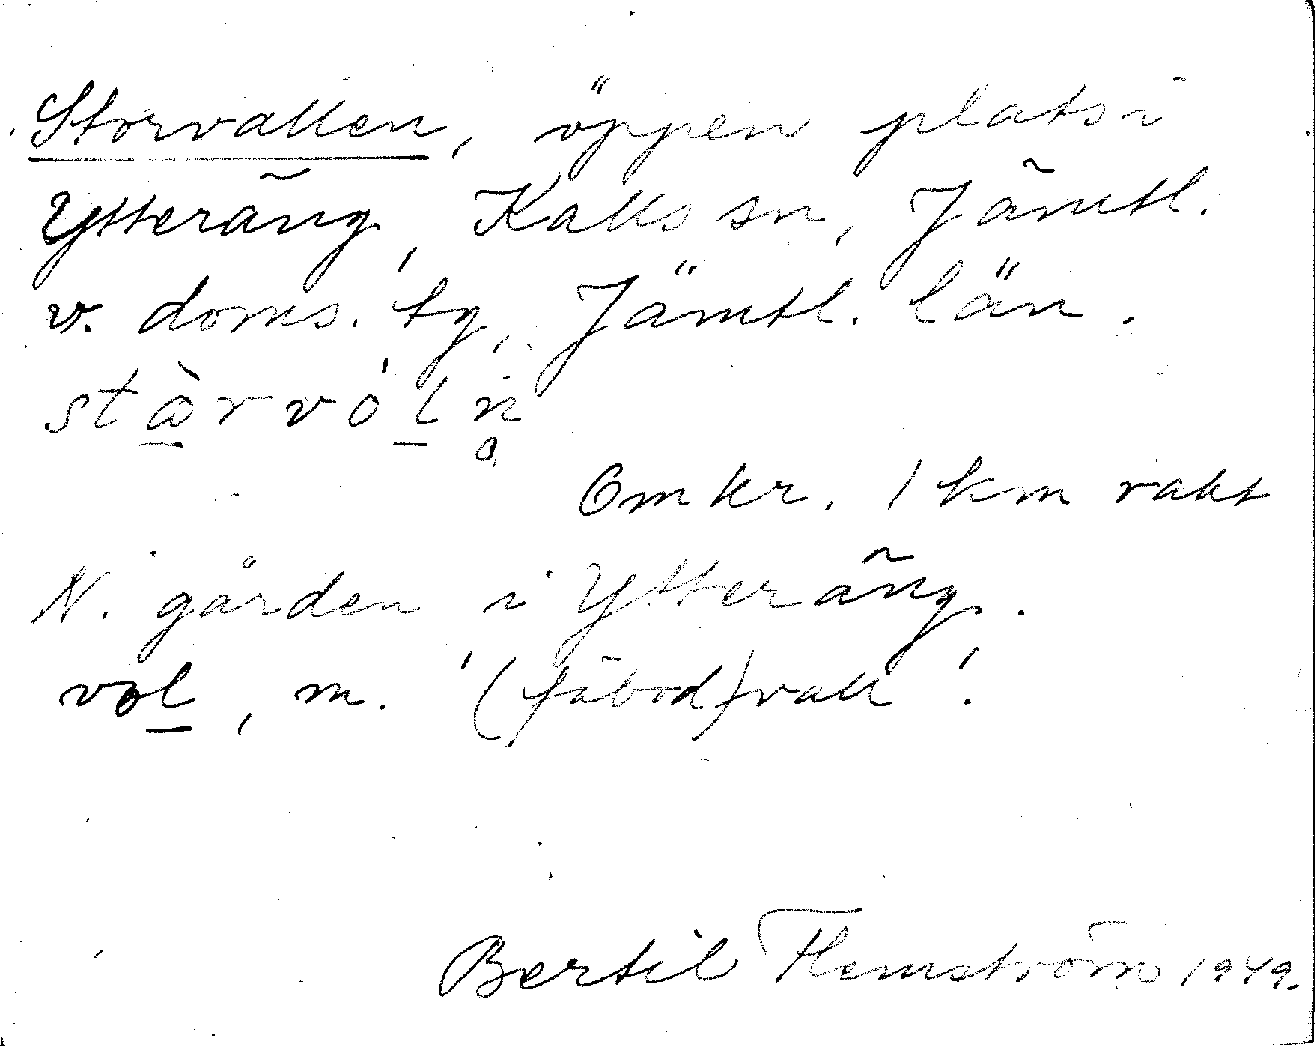 Storvallen, öppen plats i
Ytteräng, Kalls sn, Jämtl.
v. doms. tg, Jämtl. län.
stå̀rvòl̠n̥
Omkr. 1 km rakt
N. gården i Ytteräng.
vol̠, m. '(fäbod)vall'.
Bertil Flemström 1949.